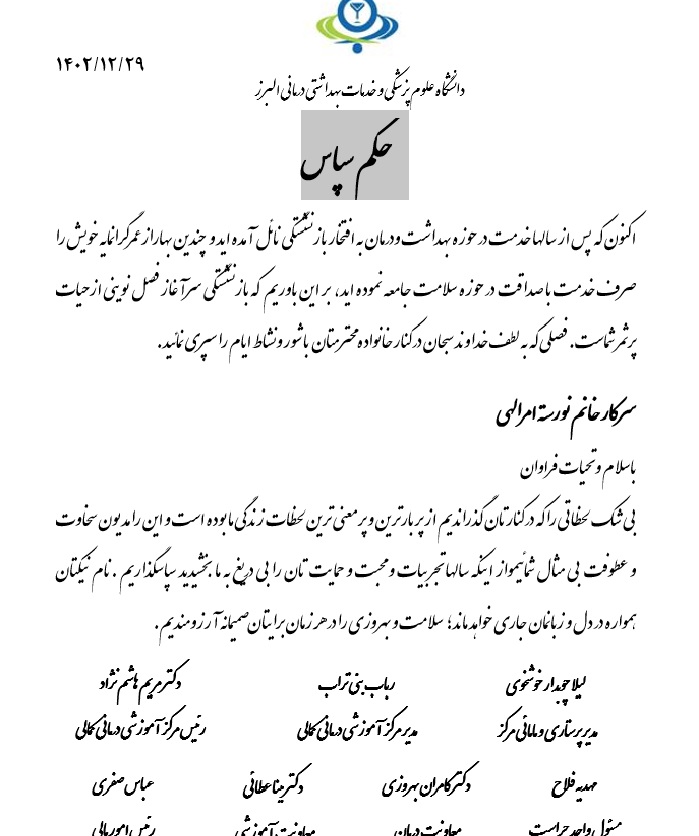 ۱۴۰۲/۱۲/۲۹
دانشگاه علوم پزشکی و خدمات بهداشتی درمانی البرز
حکم سپاس
اکنون که پس از سالها خدمت در حوزه بهداشت و درمان به افتخار بازنشستگی نائل آمده اید و چندین بهار از عمر گرانمایه خویش را
صرف خدمت با صداقت در حوزه سلامت جامعه نموده اید، بر این باوریم که بازنشستگی سرآغاز فصل نوینی از حیات
پرثمر شماست. فصلی که به لطف خداوند سبحان در کنار خانواده محترمتان با شور و نشاط ایام را سپری نمائید.
سرکار خانم نورسته امرالهی
با سلام و تحیات فراوان
بی شک لحظاتی را که در کنارتان گذراندیم از پر بارترین و پر معنی ترین لحظات زندگی ما بوده است و این را مدیون سخاوت
و عطوفت بی مثال شمائیم و از اینکه سالها تجربیات و محبت و حمایت تان را بی دریغ به ما بخشیدید سپاسگذاریم . نام نیکتان
همواره در دل و زبانمان جاری خواهد ماند؛ سلامت و بهروزی را در هر زمان برایتان صمیمانه آرزومندیم.
لیلا چوبدار خوشخوی رباب بنی تراب دکتر مریم هاشم نژاد
مدیر پرستاری و مامائی مرکز مدیر مرکز آموزشی درمانی کمالی رئیس مرکز آموزشی درمانی کمالی
مهدیه فلاح دکتر کامران بهروزی دکتر مینا عطائی عباس صفری
مسئول واحد حراست معاونت درمان معاونت آموزشی رئیس امور مالی